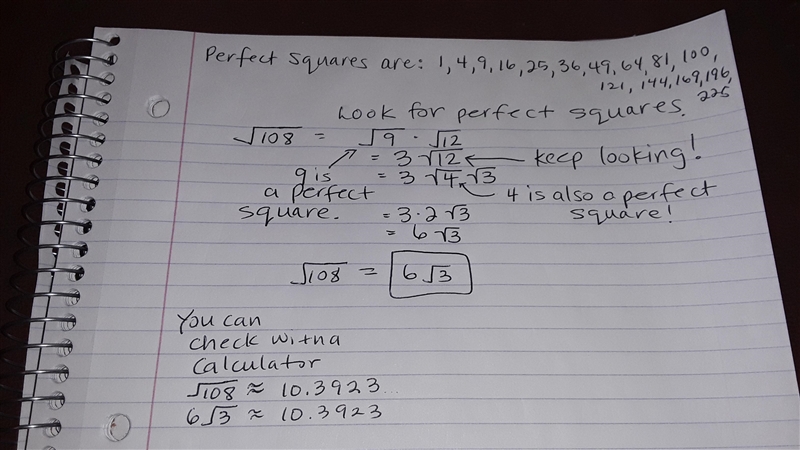 Perfect Squares are: 1, 4, 9, 16, 25, 36, 49, 64, 81, 100,
121, 144, 169, 196,
225
Look for perfect squares.
√108 = √9 · √12
= 3 √12 ← keep looking!
9 is = 3 √4 √3
a perfect 4 is also a perfect
square. = 3·2 √3 square!
= 6 √3
√108 = 6 √3
You can
check with a
Calculator
√108 ≈ 10.3923...
6√3 ≈ 10.3923